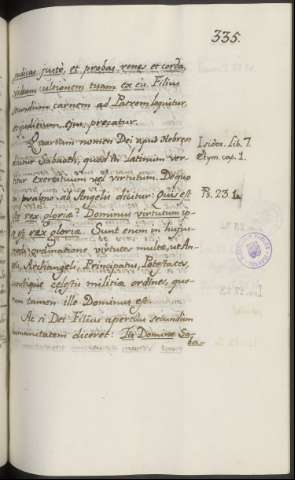 335.
judicas justè, et probas renes et corda,
videam ultionem tuam ex eis. Filius
secundum carnem ad Patrem loquitur,
et ultionem precatur.
Quartum nomen Dei apud Hebreos
dicitur Sabaoth, quod in latinum ver-
titur Exercituum vel virtutum. De quo
in psalmo ab Angelis dicitur: Quis est
iste rex gloria? Dominus virtutum ip-
se est rex gloria. Sunt enim in hujus
ordinatione virtutes multe, ut An-
geli, Archangeli, Principatus, Potestates,
cunctique celestis militia ordines, quo-
rum tamen ille Dominus est.
At si Dei Filius apertius secundum
humanitatem diceret: Tu Domine Sa-
bao-
Isidor. Lib. 7.
Etym. cap. 1.
Ps. 23.